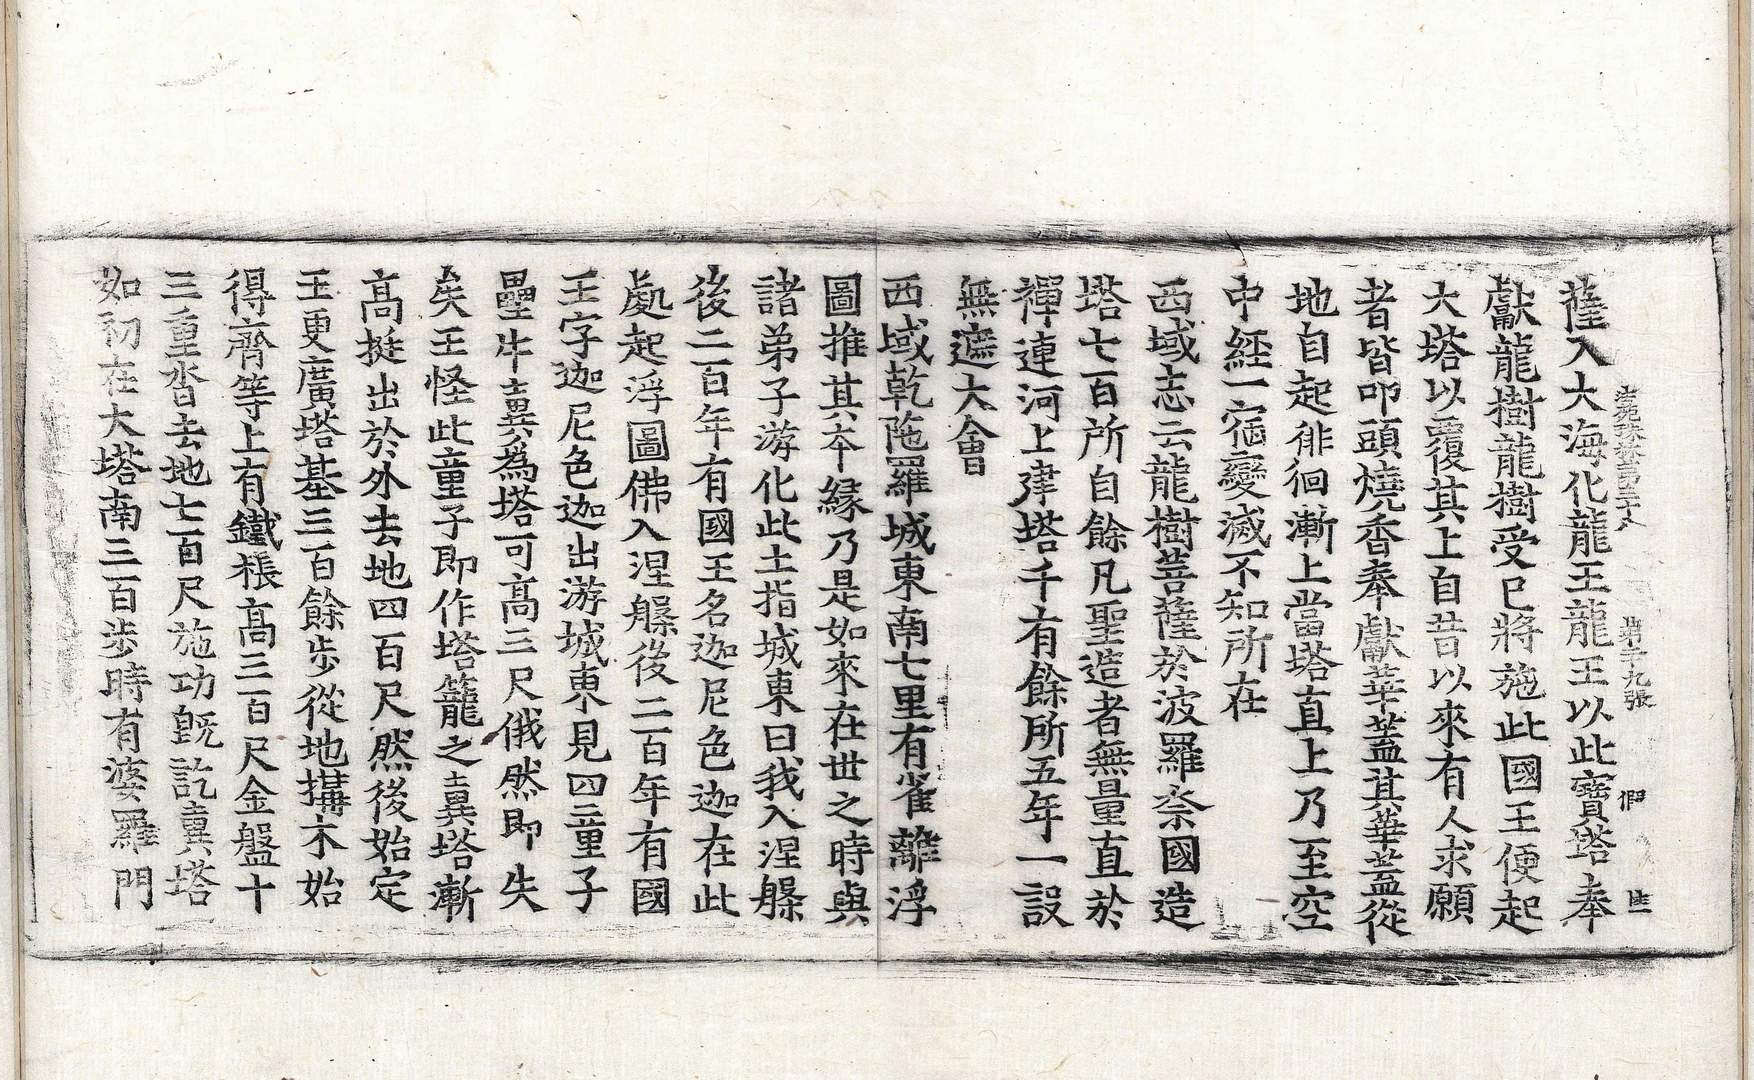 薩入大海化龍王龍王以此寶塔奉
法苑珠林第三十八 第二十九張 假
獻龍樹龍樹受已將施此國王便起
大塔以覆其上自昔以來有人求願
者皆叩頭燒香奉獻華蓋其華蓋從
地自起徘徊漸上當塔直上乃至空
中經一宿變滅不知所在
西域志云龍樹菩薩於波羅奈國造
塔七百所自餘凡聖造者無量直於
禪連河上建塔千有餘所五年一設
無遮大會
西域乾陁羅城東南七里有雀離浮
圖推其本緣乃是如來在世之時與
諸弟子游化此土指城東曰我入涅槃
後二百年有國王名迦尼色迦在此
處起浮圖佛入涅槃後二百年有國
王字迦尼色迦出游城東見四童子
壘牛糞為塔可高三尺俄然即失
矣王怪此童子即作塔籠之糞塔漸
高挺出於外去地四百尺然後始定
王更廣塔基三百餘步從地搆木始
得齊等上有鐵棖高三百尺金盤十
三重沓去地七百尺施功既訖糞塔
如初在大塔南三百步時有婆羅門